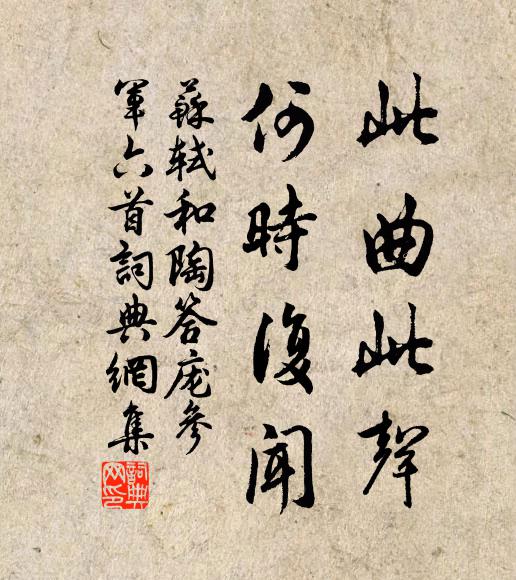 此曲此聲
何時復聞
蘇軾和陶答庞參
軍六首詞典網集
詞典網印